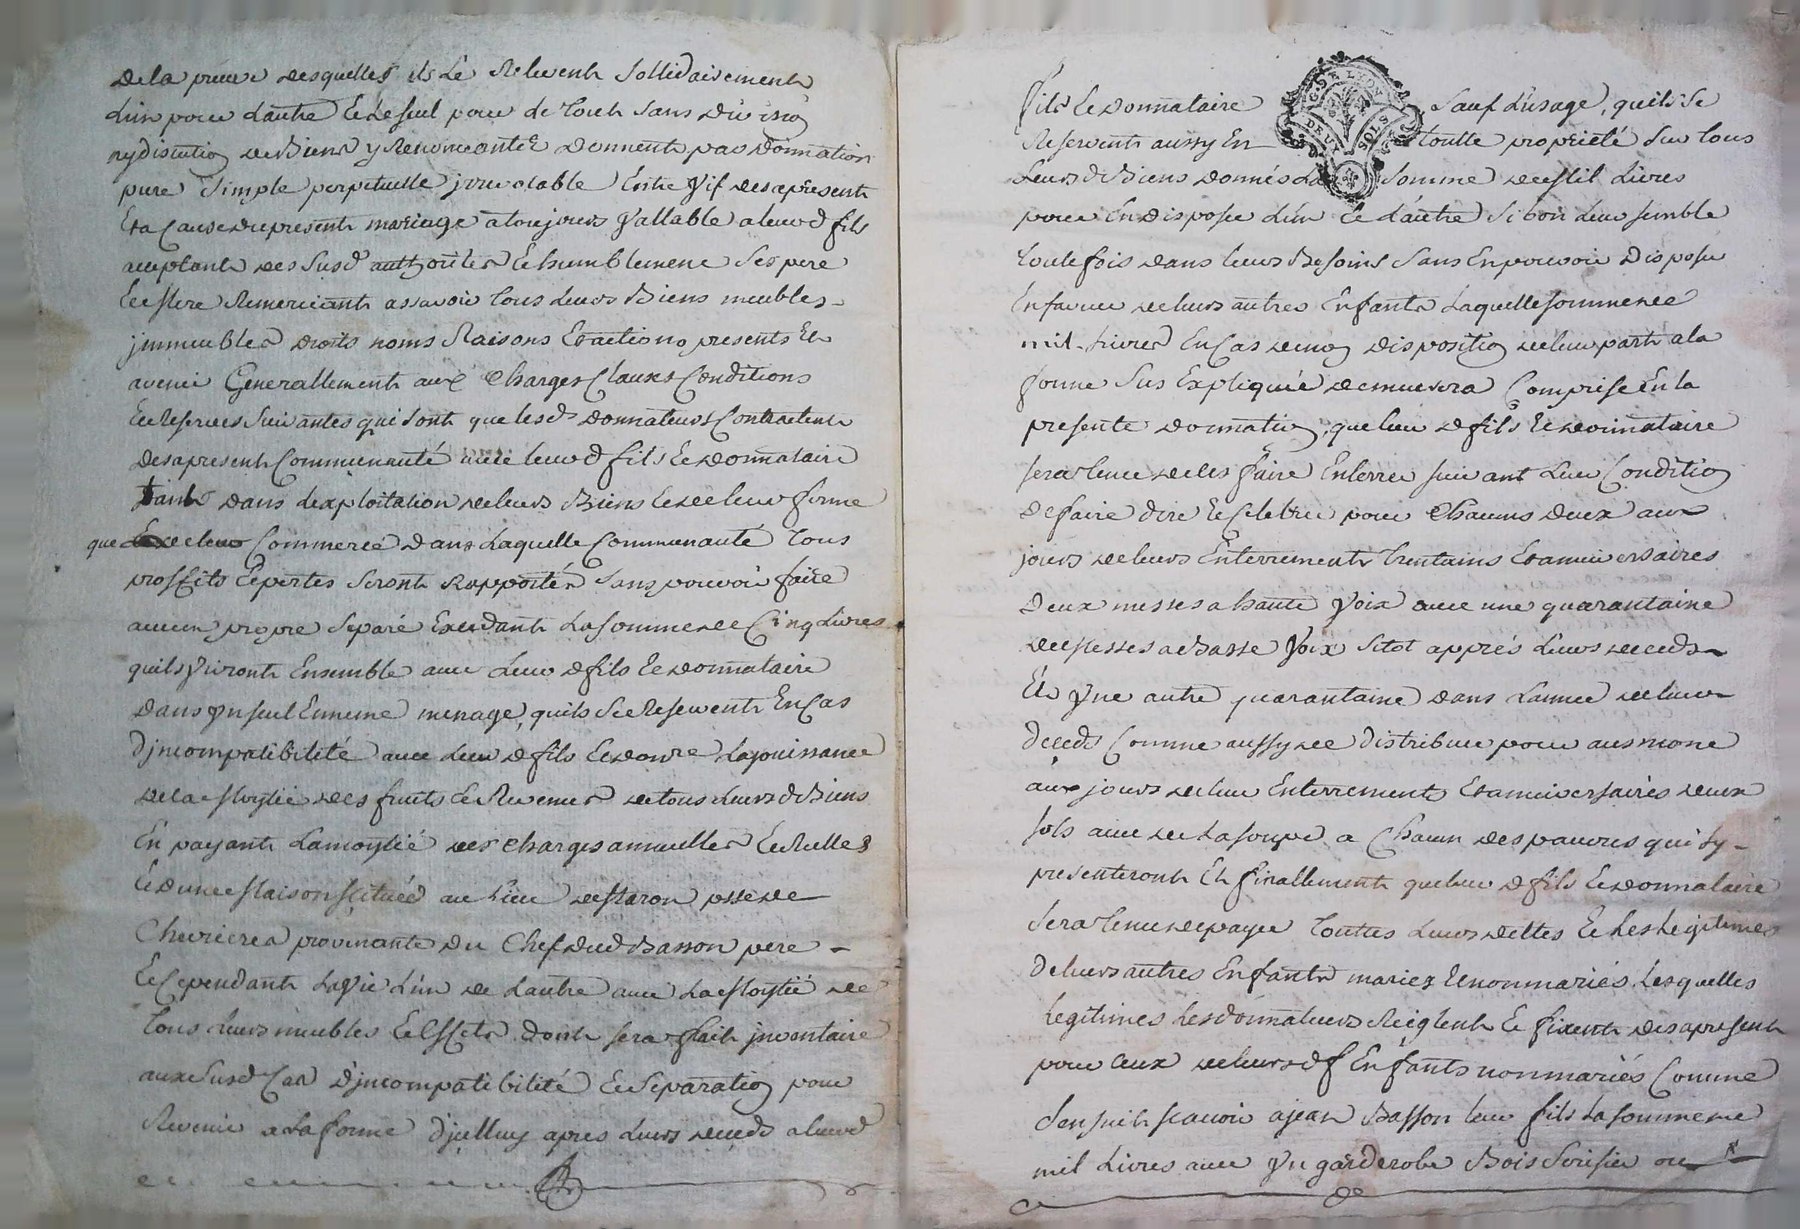 De la preuve desquelles ils se Relevent Sollidairement
L'un pour Lautre Et Le seul pour le Tout Sans Division
ny discution de Biens y Renonceants Donnent par Donnation
pure Simple perpetuelle jrrevocable Entre Vif desapresent
Et a Cause du present mariage a toujours Vallable a leurd fils
acceptant des Susd authorites Et humblement Ses pere
Et Mere Remerciant assavoir Tous Leurs Biens meubles
jmmeubles Droits noms Raisons Et actions presents Et
avenir Generallement aux Charges Clauses Conditions
Et Reserves Suivantes qui sont que lesd Donnateurs Contractent
desapresent Communauté avec leurd fils Et Donnataire
tant dans Lexploitation de leurs Biens Et de leur ferme
que de leur Commerce Dans Laquelle Communauté Tous
proffits Et pertes Seront Rapportés Sans pouvoir faire
aucun propre Separé Excedant La somme de Cinq Livres
quils Vivront Ensemble avec Leurd fils Et Donnataire
Dans Un seul Et meme menage, quils Se Reservent En Cas
Djncompatibilité avec Leurd fils Et Donre La jouissance
De la Moytié des fruits Et Revenus de tous Leursd Biens
En payant La moytié des Charges annuelles Et Réelles
Et D'une Maison Scituée au Lieu de Maron posse de
Chevrieres provenante Du Chef Dud Basson pere
Et Cependant La Vie L'un de Lautre avec La Moytié de
Tous Leurs meubles Et Effets dont sera fait jnventaire
aux Susd Cas D'jncompatibilité Et Separation pour
Revenir a La forme Djcelluy apres Leurs deceds a leurd
fils Le Donnataire Sauf L'usage, quils Se
G. DE LYON
DEUX SOLS
Reservent aussy En Toutte proprieté Sur tous
Leursd Biens Donnés La Somme de Mil Livres
pour En Disposer L'un Et L'autre Si bon Leur semble
Toutefois dans leurs Besoins Sans En pouvoir Disposer
En faveur de leurs autres Enfants Laquelle somme de
mil Livres En Cas de non Disposition de leur part a la
forme Sus Expliquée demeurera Comprise En la
presente Donnation, que leurd fils Et Donnataire
sera tenu de les faire Enterrer suivant Leur Condition
De faire dire Et Celebrer pour Chacuns Deux aux
jours de leurs Enterrements Trentains Et anniversaires
Deux messes a haute Voix avec une quarantaine
de Messes a Basse Voix Sitot apprés Leurs deceds
Et Une autre quarantaine Dans L'année de leurs
deceds Comme aussy de Distribuer pour ausmone
aux jours de leur Enterrements Et anniversaires deux
sols avec de La soupe a Chacun des pauvres qui sy
presenteront Et finallement que leurd fils Et Donnataire
Sera tenu de payer Touttes Leurs dettes Et Les Legitimes
De leurs autres Enfants mariez Et non mariés Lesquelles
Legitimes Les donnateurs Reiglent Et fixent desapresent
pour Ceux de leursd Enfants non mariés Comme
S'en suit scavoir a jean Basson leur fils La somme de
mil Livres avec Un garderobe Bois Serisier ou